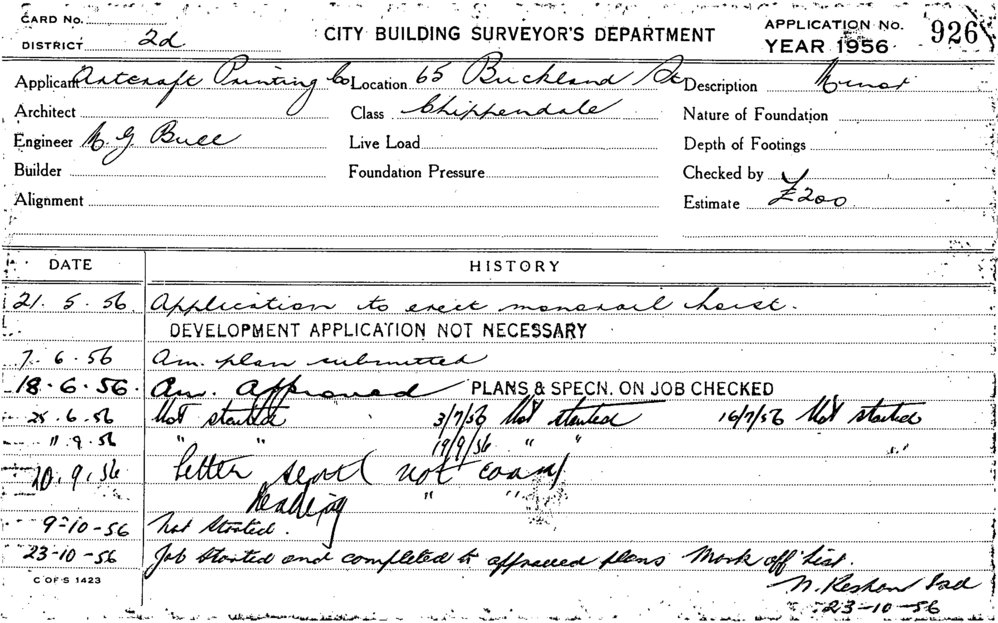 CARD NO.
DISTRICT 2d
CITY BUILDING SURVEYOR'S DEPARTMENT
APPLICATION NO. 926
YEAR 1956
Applicant Artcraft Printing Co Location 65 Buckland St Description Minor
Architect Class Chippendale Nature of Foundation
Engineer N. G. Bull Live Load Depth of Footings
Builder Foundation Pressure Checked by
Alignment Estimate £200
DATE HISTORY
21. 5. 56. Application to erect monorail hoist.
DEVELOPMENT APPLICATION NOT NECESSARY
7. 6. 56 Am. plan submitted
18. 6. 56. Am. Approved PLANS & SPECN. ON JOB CHECKED
25. 6. 56 Not started 3/7/56 Not started 16/7/56 Not started
11. 9. 56 " " 19/9/56 " "
20. 9. 56 Letter not
" "
9-10-56 Not Started.
23-10-56 Job Started and completed to approved plans Mark off List.
C OF S 1423
23-10-56